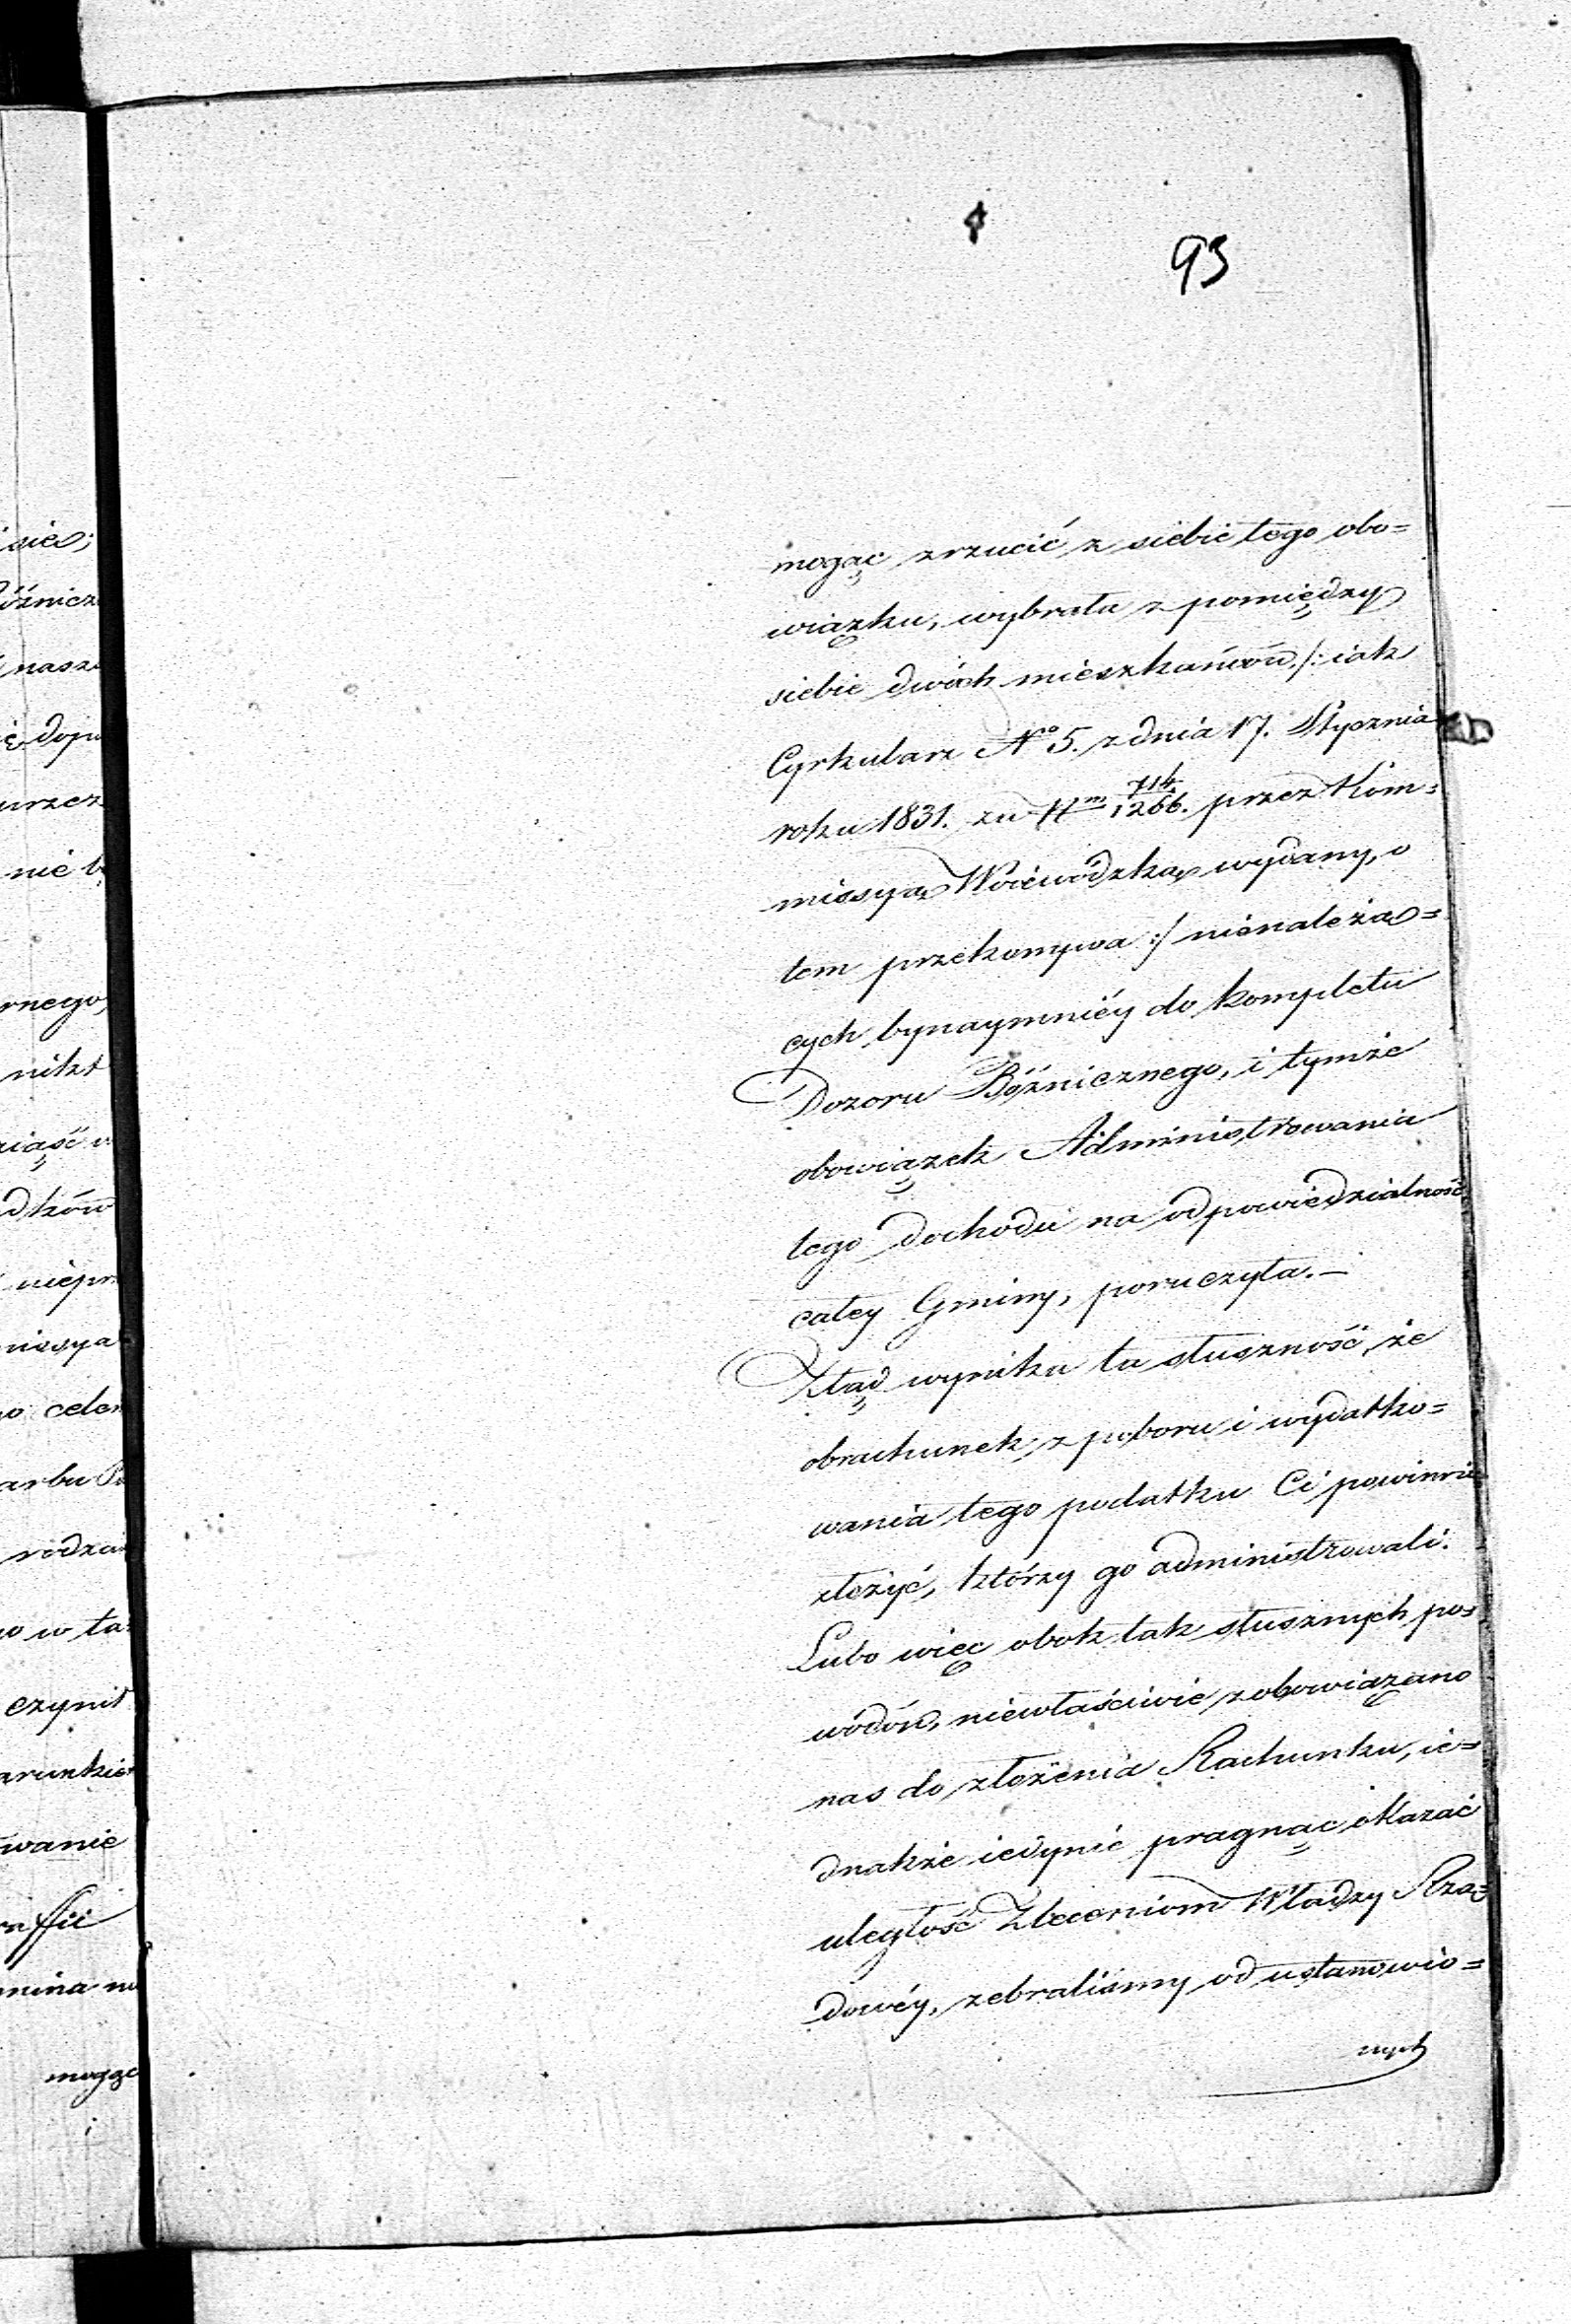 93
mogąc zrzucić z siebie tego obo=
wiązku, wybrała z pomiędzy
siebie dwóch mieszkańców /: iak
Cyrkularz No 5. z dnia 17. Stycznia
roku 1831. za Nm 714/1266. przez Kom=
missyą Woiewódzką wydany, o
tem przekonywa :/ nienależą=
cych bynaymniéy do kompletu
Dozoru Bóżnicznego, i tymże
obowiązek Administrowania
tego dochodu na odpowiedzialność
całey Gminy, poruczyła. —
Ztąd wynika ta słuszność, że
obrachunek z poboru i wydatko=
wania tego podatku Ci powinni
złożyć, którzy go administrowali.
Lubo więc obok tak słusznych po=
wodów, niewłaściwie zobowiązano
nas do złożenia Rachunku, ie=
dnakże iedynie pragnąc okazać
uległość Zleceniom Władzy Rzą=
dowéy, zebraliśmy od ustanowio=
nych